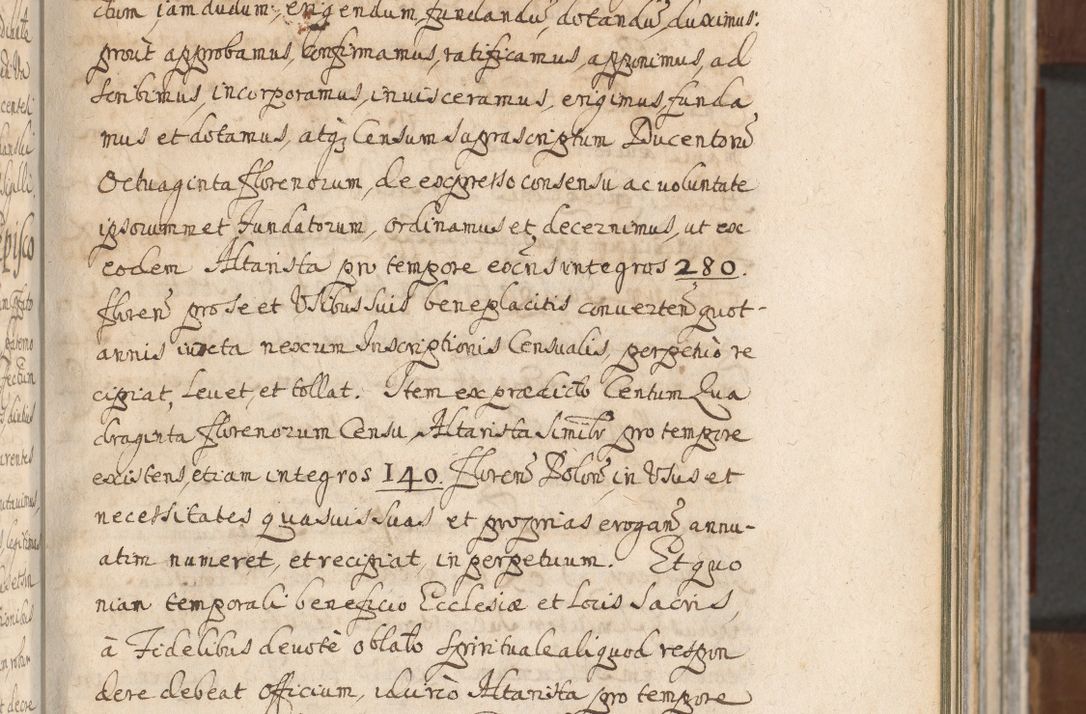 ctum jam dudum, erigendum, fundandũ, dotandũ, duximus:
prout approbamus, confirmamus, ratificamus, apponimus, ad
scribimus, incorporamus, invisceramus, erigimus, funda
mus et dotamus, atq; Censum suprascriptum Ducentorũ
Octuaginta florenorum, de expresso consensu ac voluntate
ipsorummet Fundatorum, ordinamus et decernimus, ut ex
eodem Altarista pro tempore exñs integros 280.
floreñ pro se et Usibus suis beneplacitis converteñ quot-
annis juxta nexum Inscriptionis Censualis, perpetuò re
cipiat, Levet, et tollat. Item ex prædicto Centum Qua
draginta florenorum Censu, Altarista similr pro tempore
existens, etiam integros 140. floreñ Poloñ, in Usus et
necessitates quasvis suas et proprias erogañ annu-
atim numeret, et recipiat, in perpetuum. Et quo
niam temporali beneficio Ecclesiæ et Locis Sacris,
à Fidelibus devotè oblato spirituale aliquod respon
dere debeat officium, idcircò Altarista pro tempore